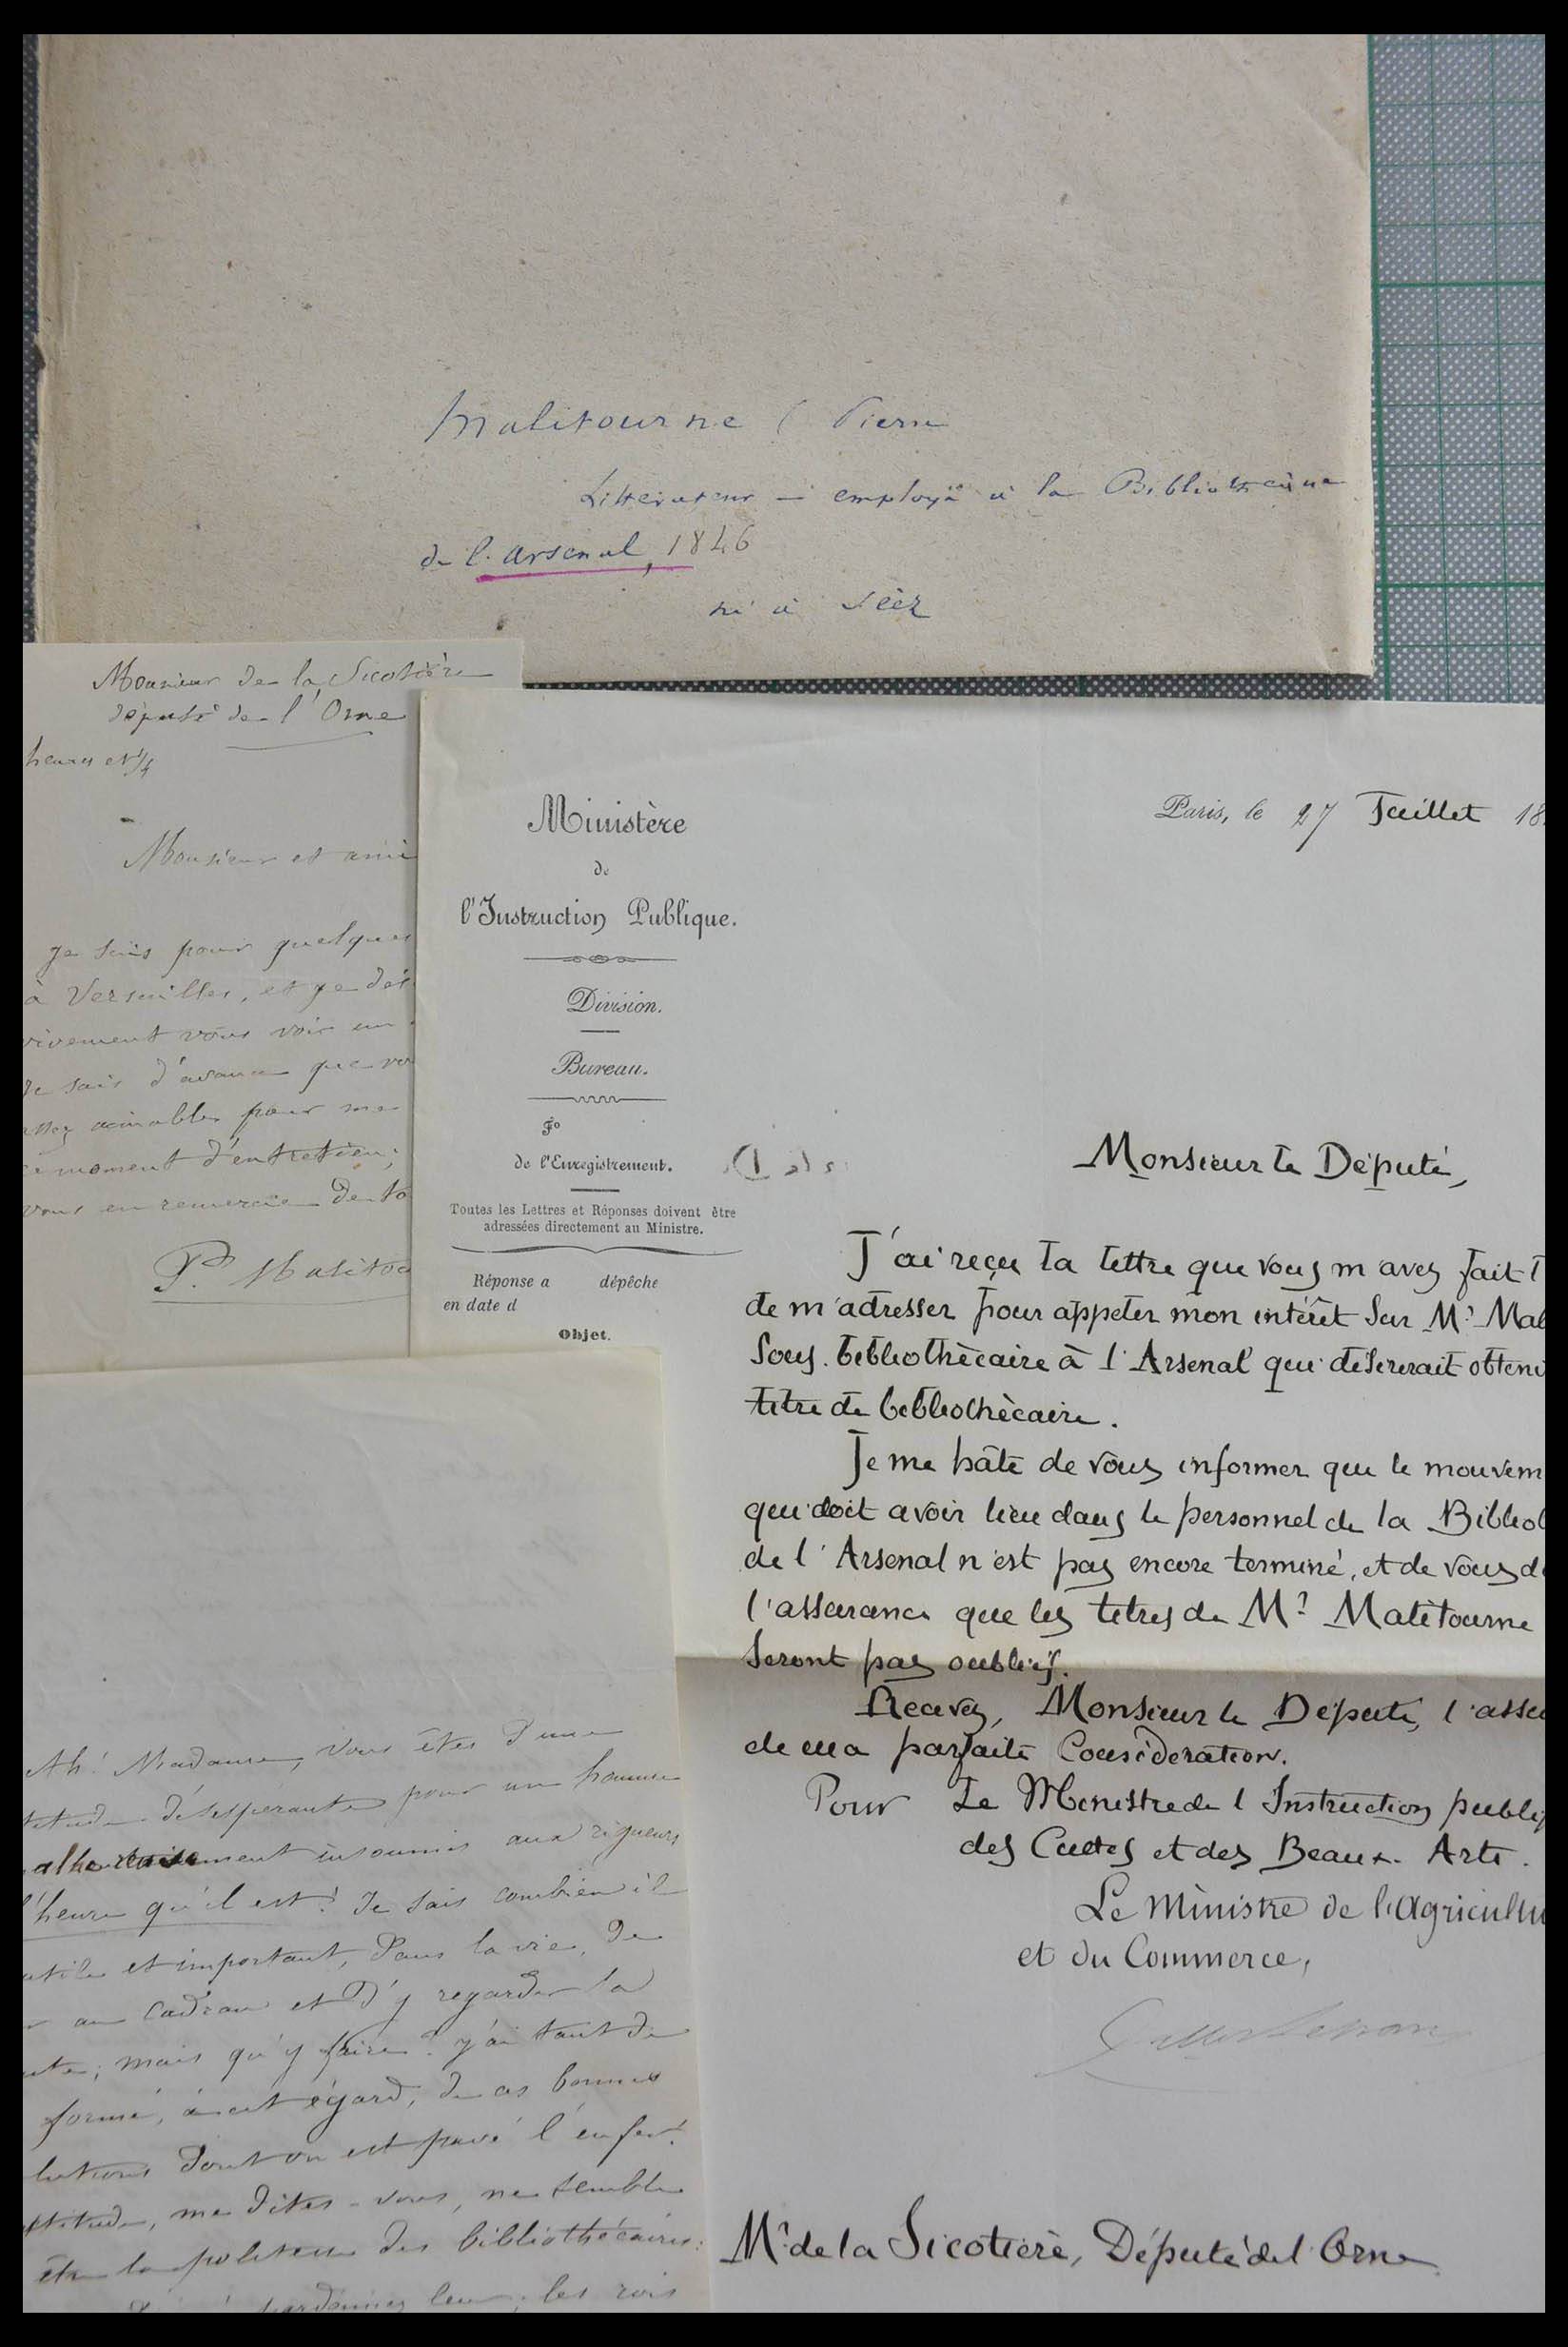 Malitourne (Pierre
Littérateur – employé à la Bibliothèque
de l'arsenal, 1846
né à Séez
Monsieur de la Sicotière
député de l'Orne
heures et 1/4
Monsieur et ami
Je suis pour quelques
à Versailles, et je dés
vivement vous voir un
Je sais d'avance que vo
assez aimables pour me
moment d'entretien;
vous en remercie de to
P. Malitou
Ministère
de
l'Instruction Publique.
Division.
Bureau.
Fo
de l'Enregistrement.
Toutes les Lettres et Réponses doivent être
adressées directement au Ministre.
Réponse a dépêche
en date d
Objet.
Paris, le 27 Juillet 18
Monsieur le Député,
J'ai reçu la lettre que vous m'avez fait l
de m'adresser pour appeler mon intérêt sur Mr. Mal
Sous-bibliothécaire à l'Arsenal qui désirerait obteni
titre de bibliothécaire.
Je me hâte de vous informer que le mouvem
qui doit avoir lieu dans le personnel de la Bibliot
de l'Arsenal n'est pas encore terminé, et de vous d
l'assurance que les titres de Mr. Malitourne
seront pas oubliés.
Recevez, Monsieur le Député, l'assu
de ma parfaite Considération.
Pour Le Ministre de l'Instruction publiq
des Cultes et des Beaux-Arts.
Le Ministre de l'Agricultu
et du Commerce,
Mr. de la Sicotière, Député de l'Orne
Ah! Madame, vous êtes d'une
titude désespérante pour un homme
alheureusement insoumis aux rigueurs
l'heure qu'il est! Je sais combien il
utile et important, dans la vie, de
r au cadran et d'y regarder la
ute; mais qu'y faire? j'ai tant de
formé, à cet égard, de ces bonnes
lutions dont on est pavé l'enfer!
ctitude, me dites-vous, ne semble
être la politesse des bibliothécaires:
pardonnez leur; les rois